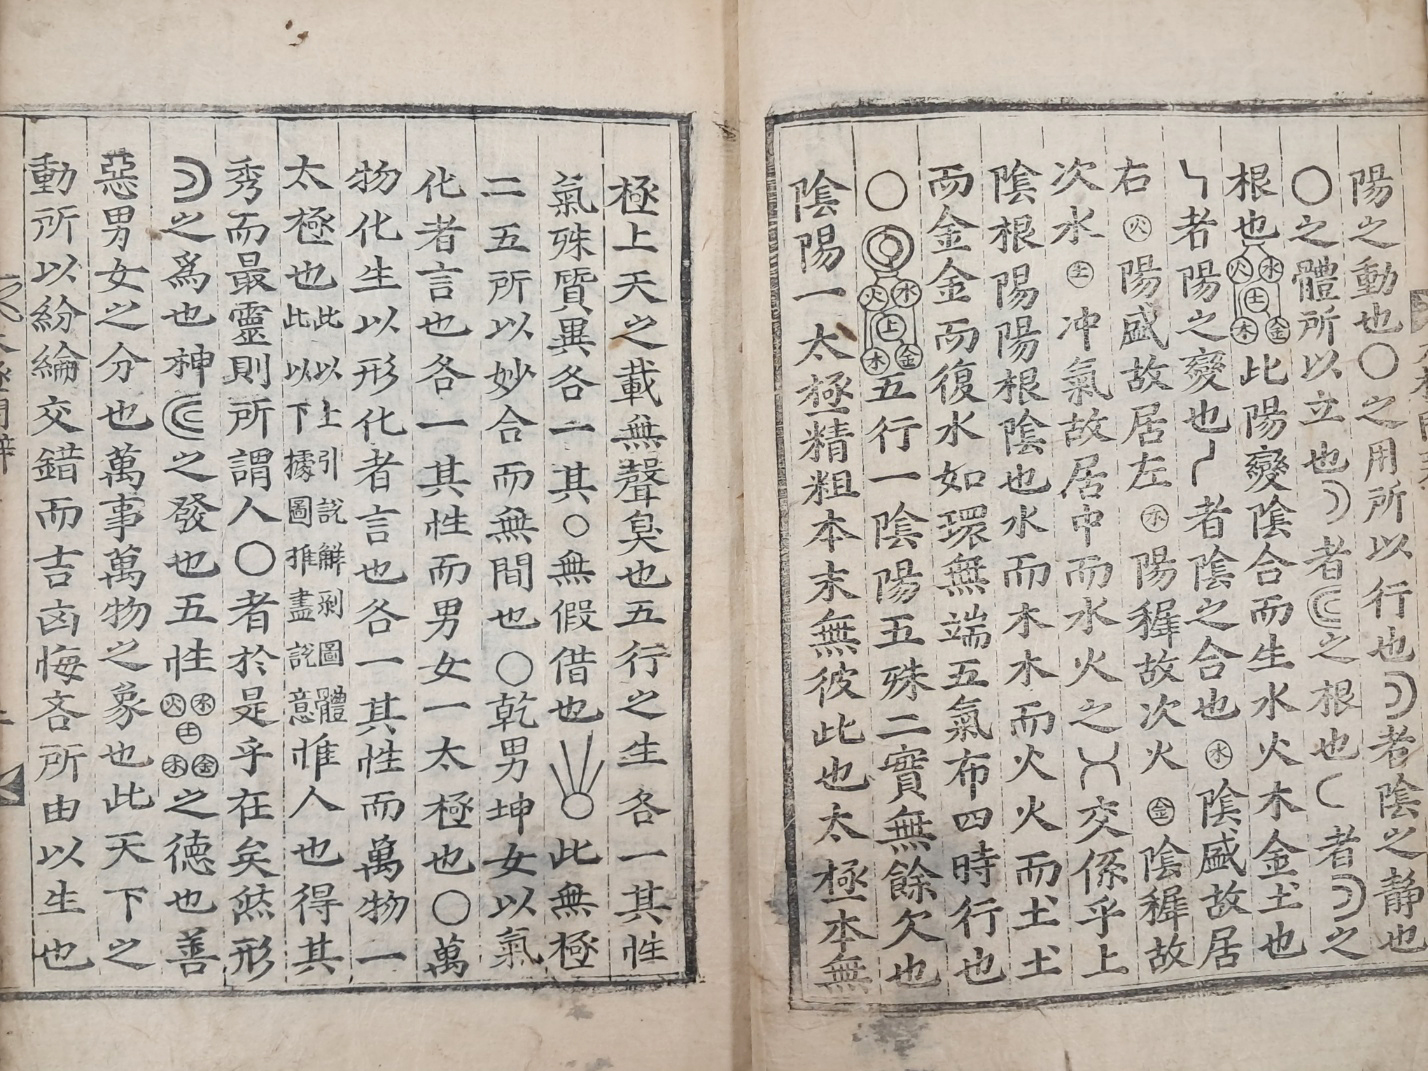 陽之動也○之用所以行也☽者陰之靜也
○之體所以立也☽者☾之根也☾者☽之
根也水火土木金此陽變陰合而生水火木金土也
者陽之變也者陰之合也水陰盛故居
右火陽盛故居左木陽穉故次火金陰穉故
次水土冲氣故居中而水火之交係乎上
陰根陽陽根陰也水而木木而火火而土土
而金金而復水如環無端五氣布四時行也
○水火土木金五行一陰陽五殊二實無餘欠也
陰陽一太極精粗本末無彼此也太極本無
極上天之載無聲臭也五行之生各一其性
氣殊質異各一其○無假借也此無極
二五所以妙合而無間也○乾男坤女以氣
化者言也各一其性而男女一太極也○萬
物化生以形化者言也各一其性而萬物一
太極也此以上引說解剝圖體此以下據圖推盡說意惟人也得其
秀而最靈則所謂人○者於是乎在矣然形
☽之爲也神☾之發也五性水火土木金之德也善
惡男女之分也萬事萬物之象也此天下之
動所以紛綸交錯而吉凶悔吝所由以生也